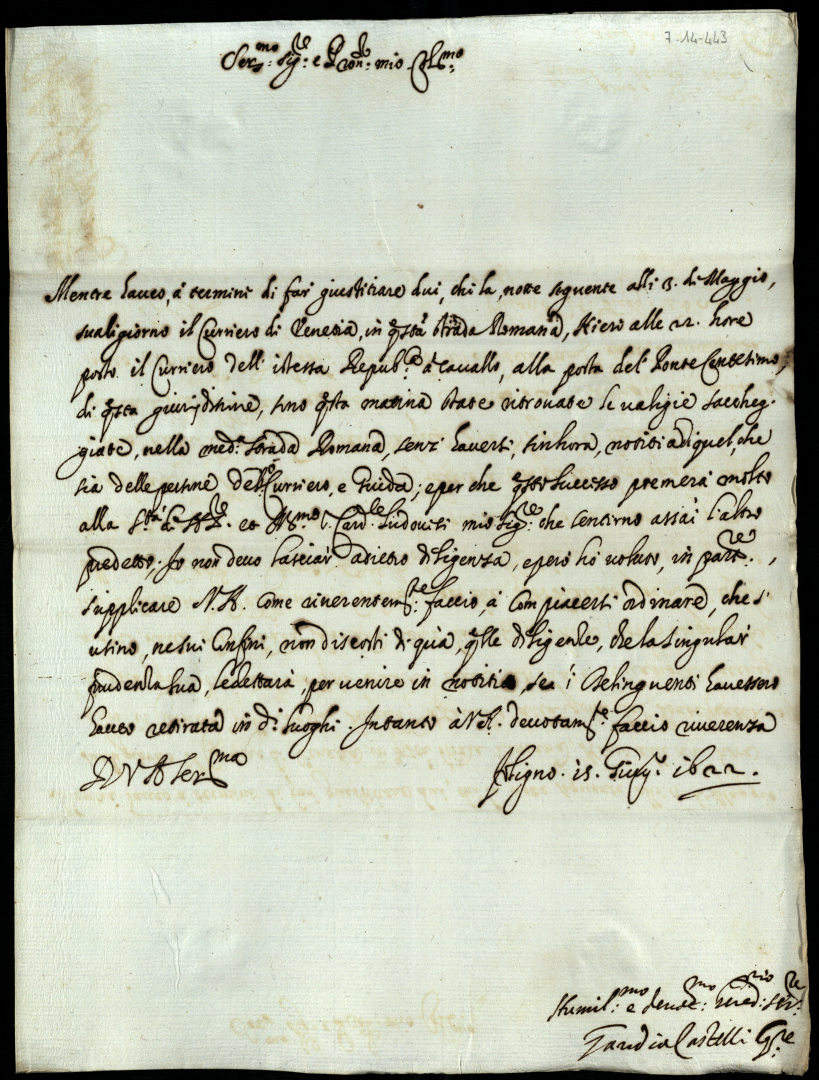 7.14-443
Ser.mo Sig.re e Pron. mio Col.mo
Mentre haveo, à termini di far giustitiare dui, chi la, notte seguente alli 13. di Maggio,
svaligiorno il Curriero di Venetia, in q.sta strada Romana, Hieri alle 22. hore
il Curriero dell'istessa Repub.ca à Cavallo, alla posta del Ponte Centesimo,
di q.sta giurisditione, sono q.sta matina state ritrovate le valigie saccheg-
giate, nella med.a strada Romana, senz'haversi, sinhora, notitia di quel, che
sia delle persone dell Curriero, e Guida; e per che q.sto successo premerà molto
alla S.tà di N.S.re et Ill.mo S. Card.le Ludovisi mio Sig.re che sentirno assai l'altro
predetto; Io non devo lasciar' adietro diligenza, e però hò voluto, in par.re,
supplicare V.A. come riverentem.te faccio, à compiacersi ordinare, che s'
usino, ne suoi Confini, non discosti di quà, q.lle diligenze, che la singular'
prudenza sua, le dettarà, per venire in notitia, se i Delinquenti havessero
hauto retirata in d.i luoghi. Intanto à V.A. devotam.te faccio riverenza
D V A Ser.ma
Foligno. 15. Giug.o 1622.
Humil.mo e devot.mo ser.re
Castelli G.re